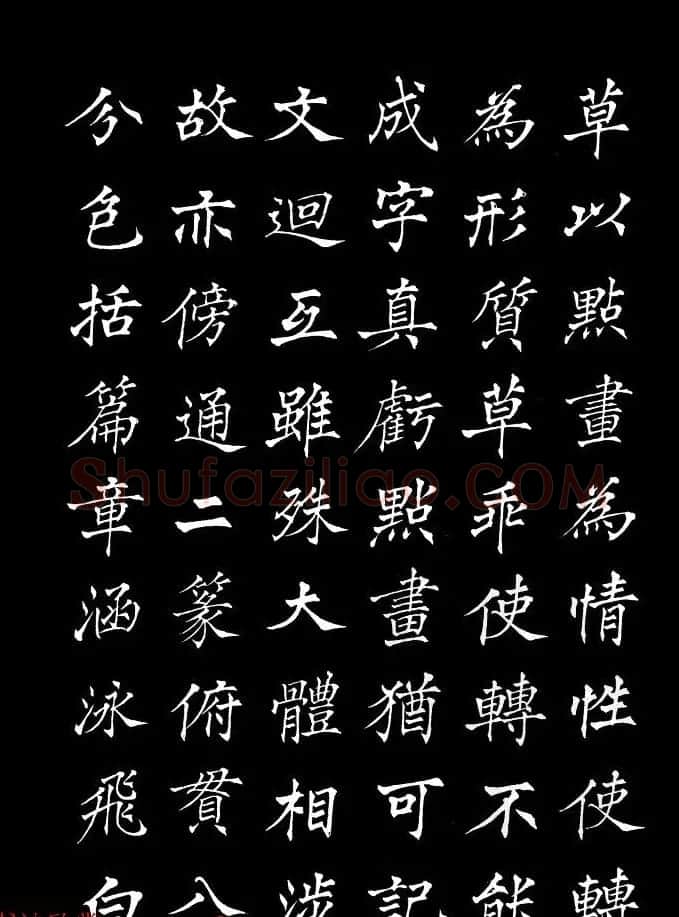 草以點畫為情性使轉
為形質草乖使轉不能
成字真虧點畫猶可記
文迴互雖殊大體相涉
故亦傍通二篆俯貫八
分包括篇章涵泳飛白
Shufaziliao.COM